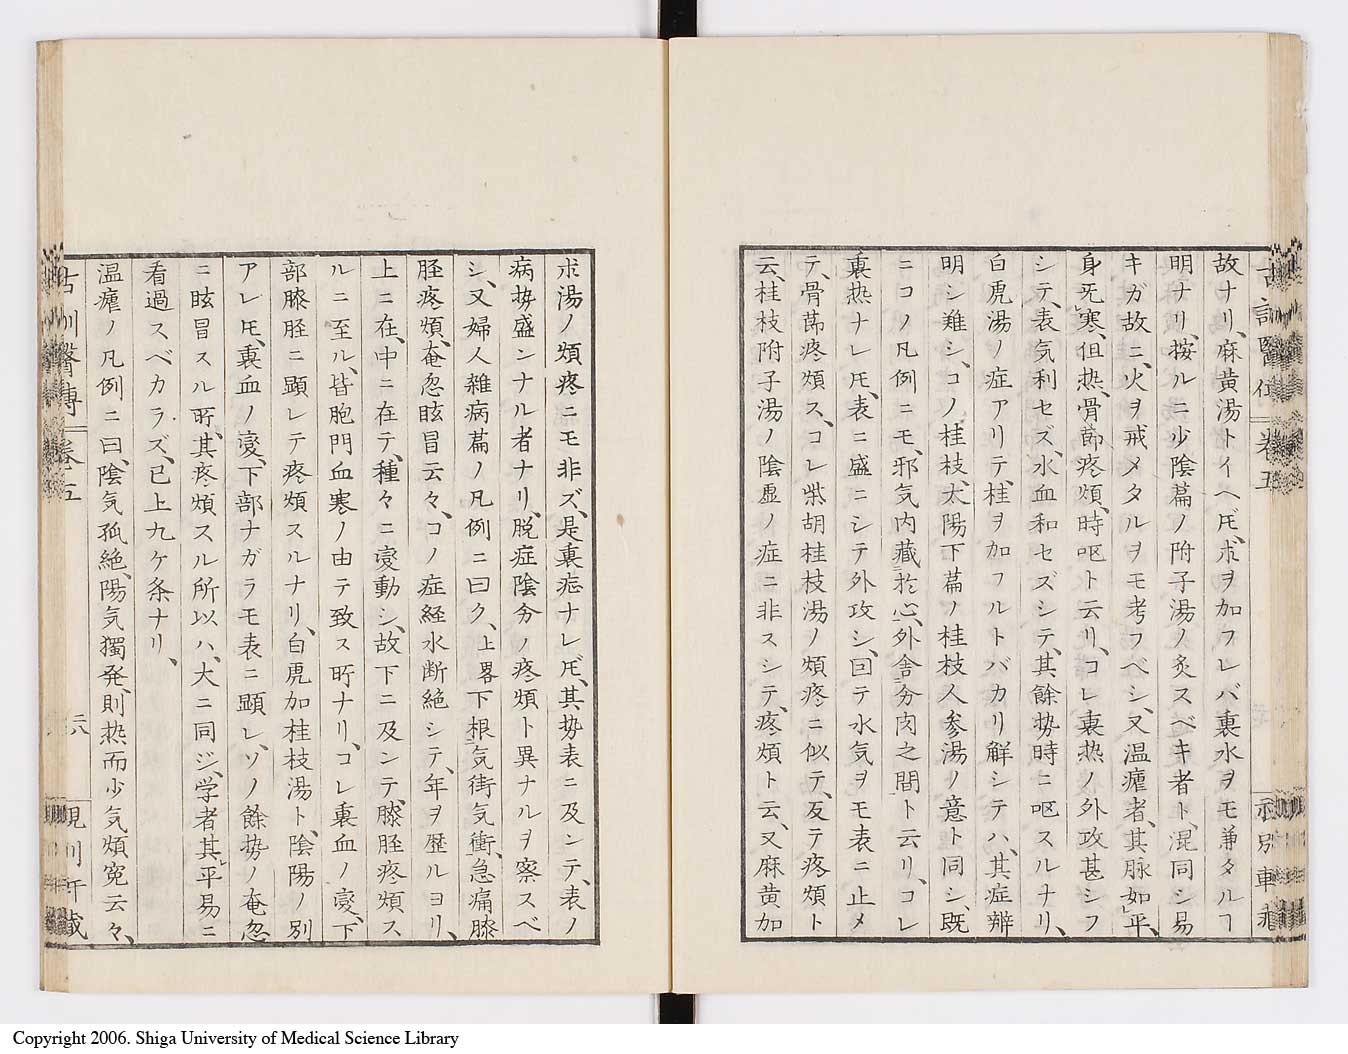 故ナリ、麻黄湯トイヘ𪜈、朮ヲ加フレバ裏水ヲモ兼タルヿ
明ナリ、按ルニ少陰篇ノ附子湯ノ灸スベキ者ト、混同シ易
キガ故ニ、火ヲ戒メタルヲモ考フベシ、又温瘧者、其脉如平、
身旡寒、但热、骨莭疼煩、時呕ト云リ、コレ裏热ノ外攻甚シフ
シテ、表気利セズ、水血和セズシテ、其餘势時ニ呕スルナリ、
白虎湯ノ症アリテ、桂ヲ加フルトバカリ解シテハ、其症辨
明シ難シ、コノ桂枝、太陽下篇ノ桂枝人参湯ノ意ト同シ、既
ニコノ凡例ニモ、邪気内藏於心、外舎分肉之間ト云リ、コレ
裏热ナレ𪜈、表ニ盛ニシテ外攻シ、回テ水気ヲモ表ニ止メ
テ、骨莭疼煩ス、コレ柴胡桂枝湯ノ煩疼ニ似テ、反テ疼煩ト
云、桂枝附子湯ノ陰虚ノ症ニ非スシテ、疼煩ト云、又麻黄加
古訓醫傳 巻五
朮湯ノ煩疼ニモ非ズ、是裏症ナレ𪜈、其势表ニ及ンテ、表ノ
病势盛ンナル者ナリ、脱症陰分ノ疼煩ト異ナルヲ察スベ
シ、又婦人雜病篇ノ凡例ニ曰ク、上畧下根気街気衝、急痛膝
胫疼煩、奄忽眩冒云々、コノ症経水断絶シテ、年ヲ歴ルヨリ、
上ニ在、中ニ在テ、種々ニ変動シ、故下ニ及ンテ、膝胫疼煩ス
ルニ至ル、皆胞門血寒ノ由テ致ス所ナリ、コレ裏血ノ変、下
部膝胫ニ顕レテ疼煩スルナリ、白虎加桂枝湯ト、陰陽ノ別
アレ𪜈、裏血ノ変、下部ナガラモ表ニ顕レ、ソノ餘势ノ奄忽
ニ眩冒スル所、其疼煩スル所以ハ、大ニ同ジ、学者其平易ニ
看過スベカラズ、已上九ケ条ナリ、
温瘧ノ凡例ニ曰、陰気孤絶、陽気獨発、則热而少気煩寃云々、
古訓醫傳 巻五 六
Copyright 2006. Shiga University of Medical Science Library